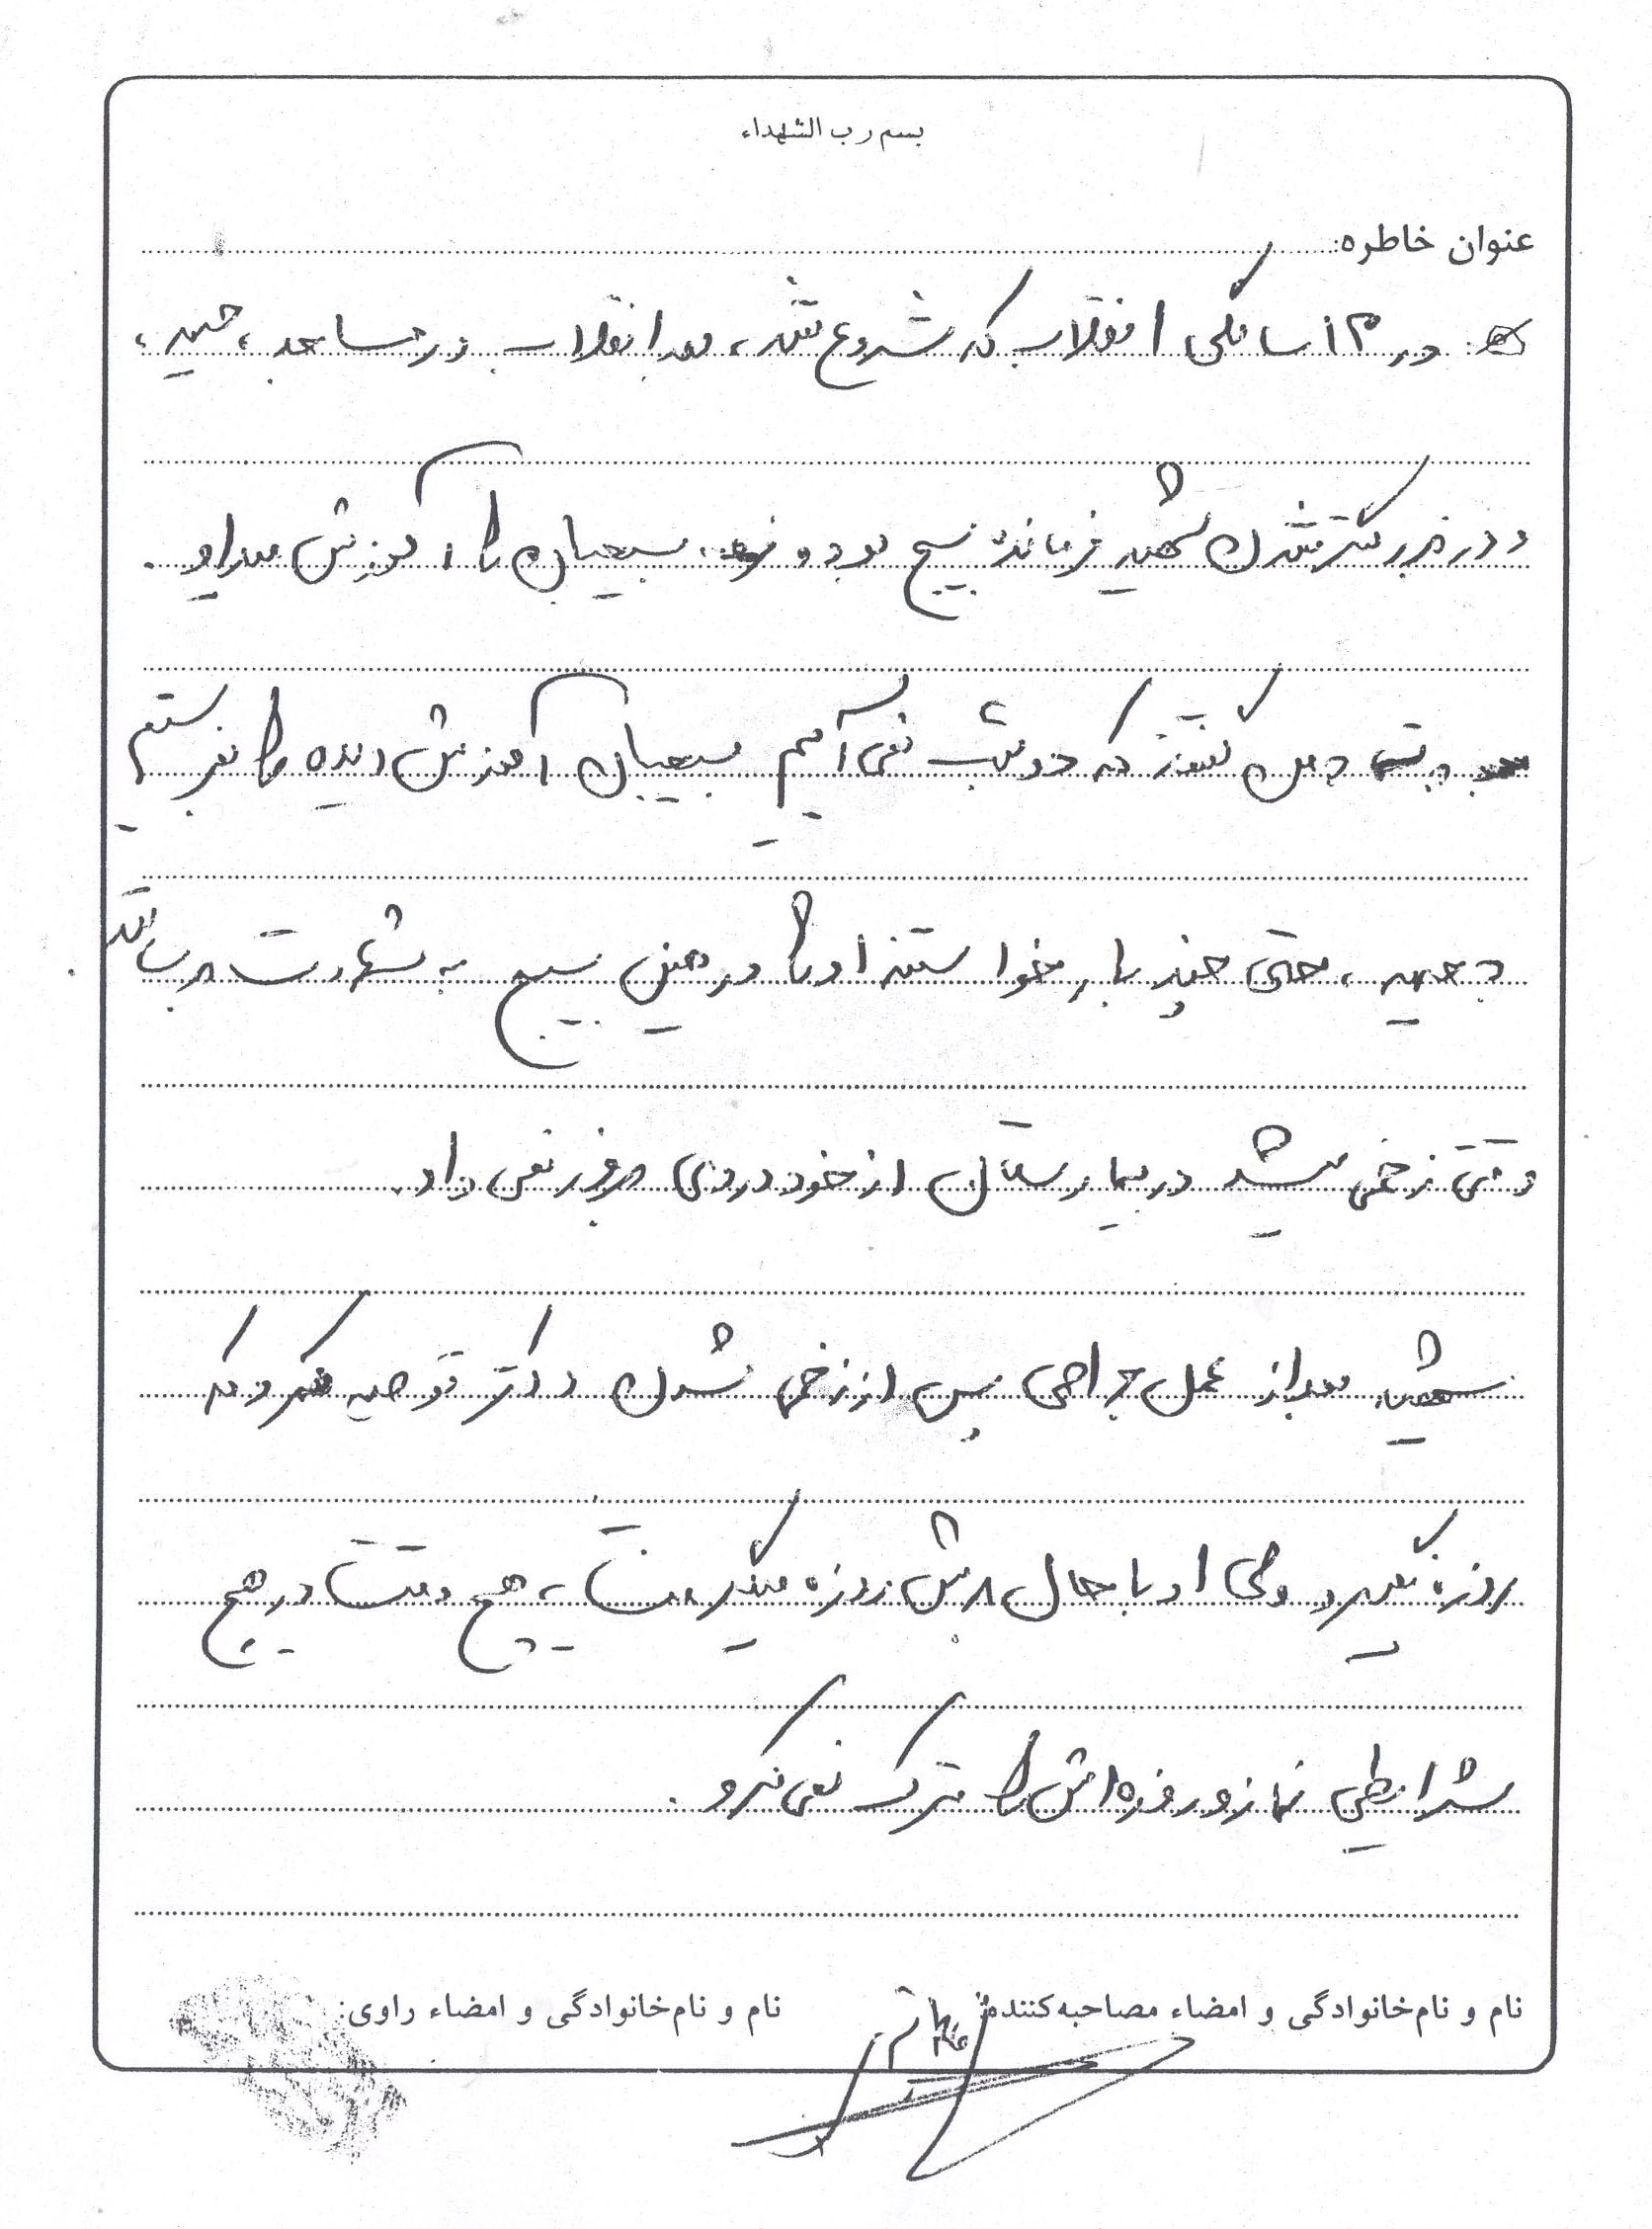 بسم رب الشهداء
عنوان خاطره:
در ۱۳ سالگی انقلاب که شروع شد، بعد انقلاب در مساجد،
و در شهید فرمانده بسیج بود و بسیجیان را آموزش میداد.
گفتند که دو شب نمی آییم بسیجیان آموزش دیده را بفرستیم
جبهه، حتی چند بار خواستند او را در همین بسیج به شهادت برسانند.
وقتی زخمی میشد در بیمارستان از خود دردی بروز نمی داد.
شهید بعد از عمل جراحی پس از زخمی شدن دکتر توصیه کرد که
روزه نگیرد ولی او با حال بدش روزه میگرفت، هیچ وقت در هیچ
شرایطی نماز و روزه اش را ترک نمی کرد.
نام و نام‌خانوادگی و امضاء مصاحبه‌کننده:
نام و نام‌خانوادگی و امضاء راوی: